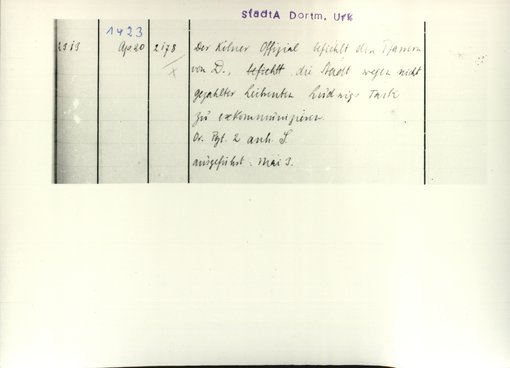 StadtA Dortm, Urk
1423
2513 Apr 20 2178 Der Kölner Offizial befiehlt den Pfarrern
x von D., befiehlt, die Stadt wegen nicht
gezahlter Leibrenten Ludwigs
zu exkommunizieren.
Or. Pgt. 2 anh. S.
ausgeführt: Mai 3.